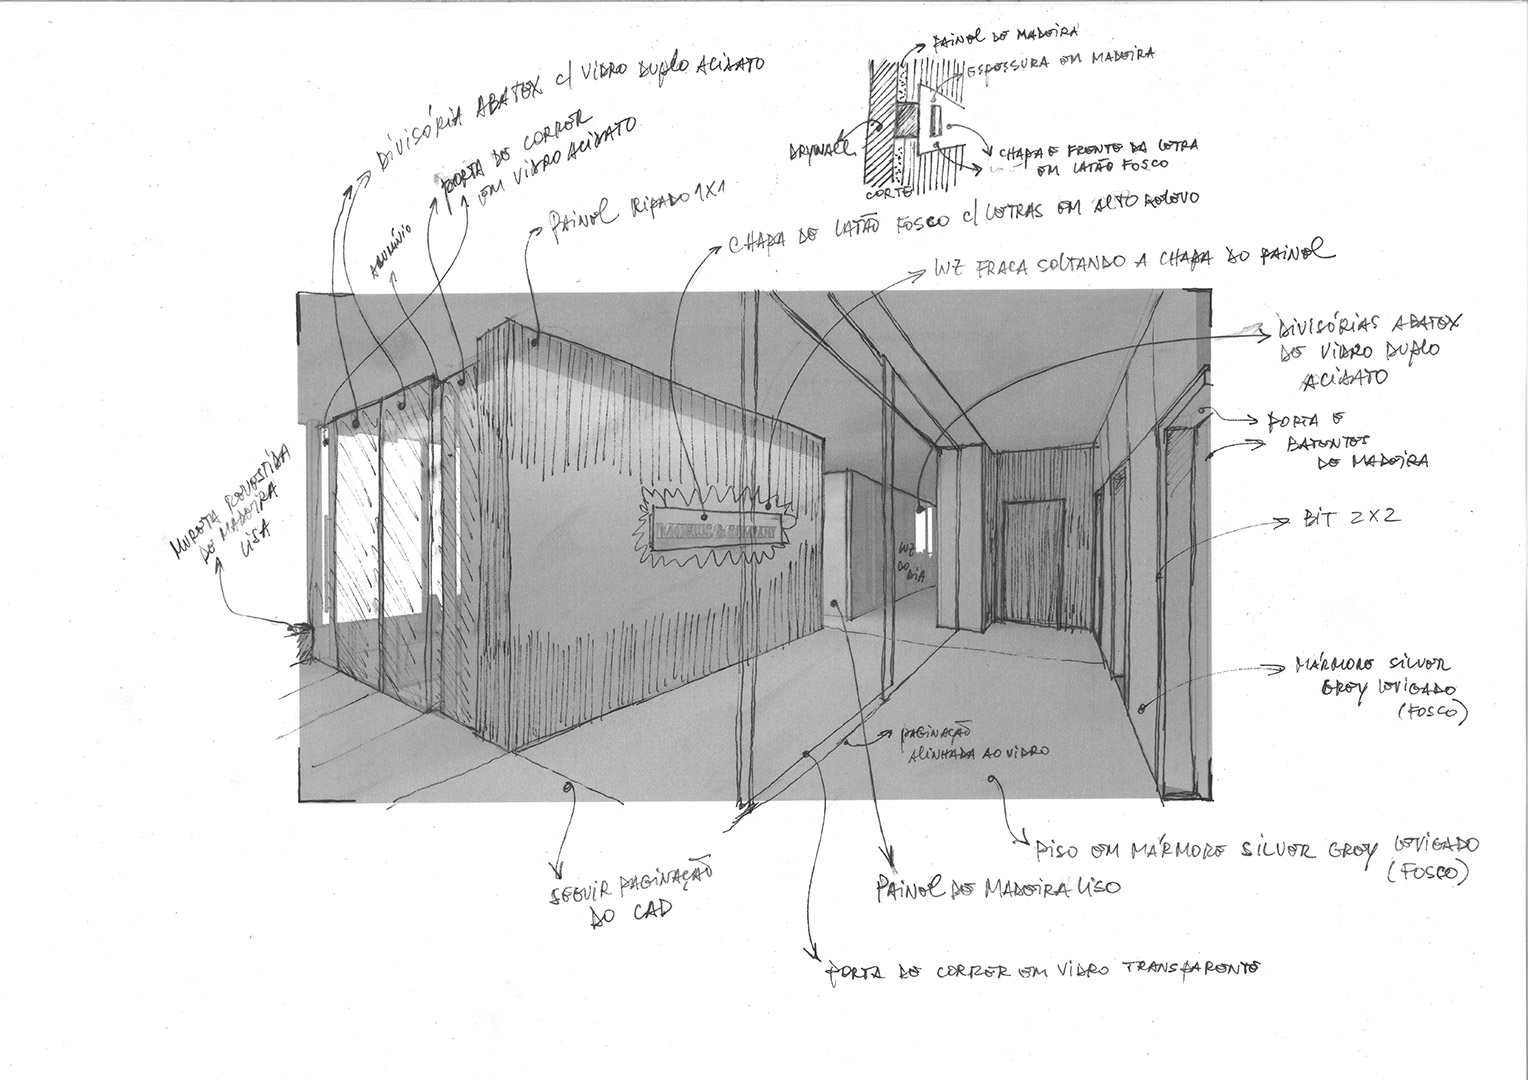 PAINEL DE MADEIRA
ESPESSURA EM MADEIRA
DRYWALL
CHAPA E FRENTE DA LETRA
EM LATÃO FOSCO
CORTE
DIVISÓRIA ABATEX C/ VIDRO DUPLO ACIDATO
PORTA DE CORRER
EM VIDRO ACIDATO
ALUMÍNIO
PAINEL RIPADO 1X1
CHAPA DE LATÃO FOSCO C/ LETRAS EM ALTO RELEVO
LUZ FRACA SOLTANDO A CHAPA DO PAINEL
DIVISÓRIAS ABATEX
DE VIDRO DUPLO
ACIDATO
PORTA E
BATENTES
DE MADEIRA
MURETA REVESTIDA
DE MADEIRA
LISA
BIT 2X2
LUZ
DO
DIA
MÁRMORE SILVER
GREY LEVIGADO
(FOSCO)
PAGINAÇÃO
ALINHADA AO VIDRO
PISO EM MÁRMORE SILVER GREY LEVIGADO
(FOSCO)
SEGUIR PAGINAÇÃO
DO CAD
PAINEL DE MADEIRA LISO
PORTA DE CORRER EM VIDRO TRANSPARENTE